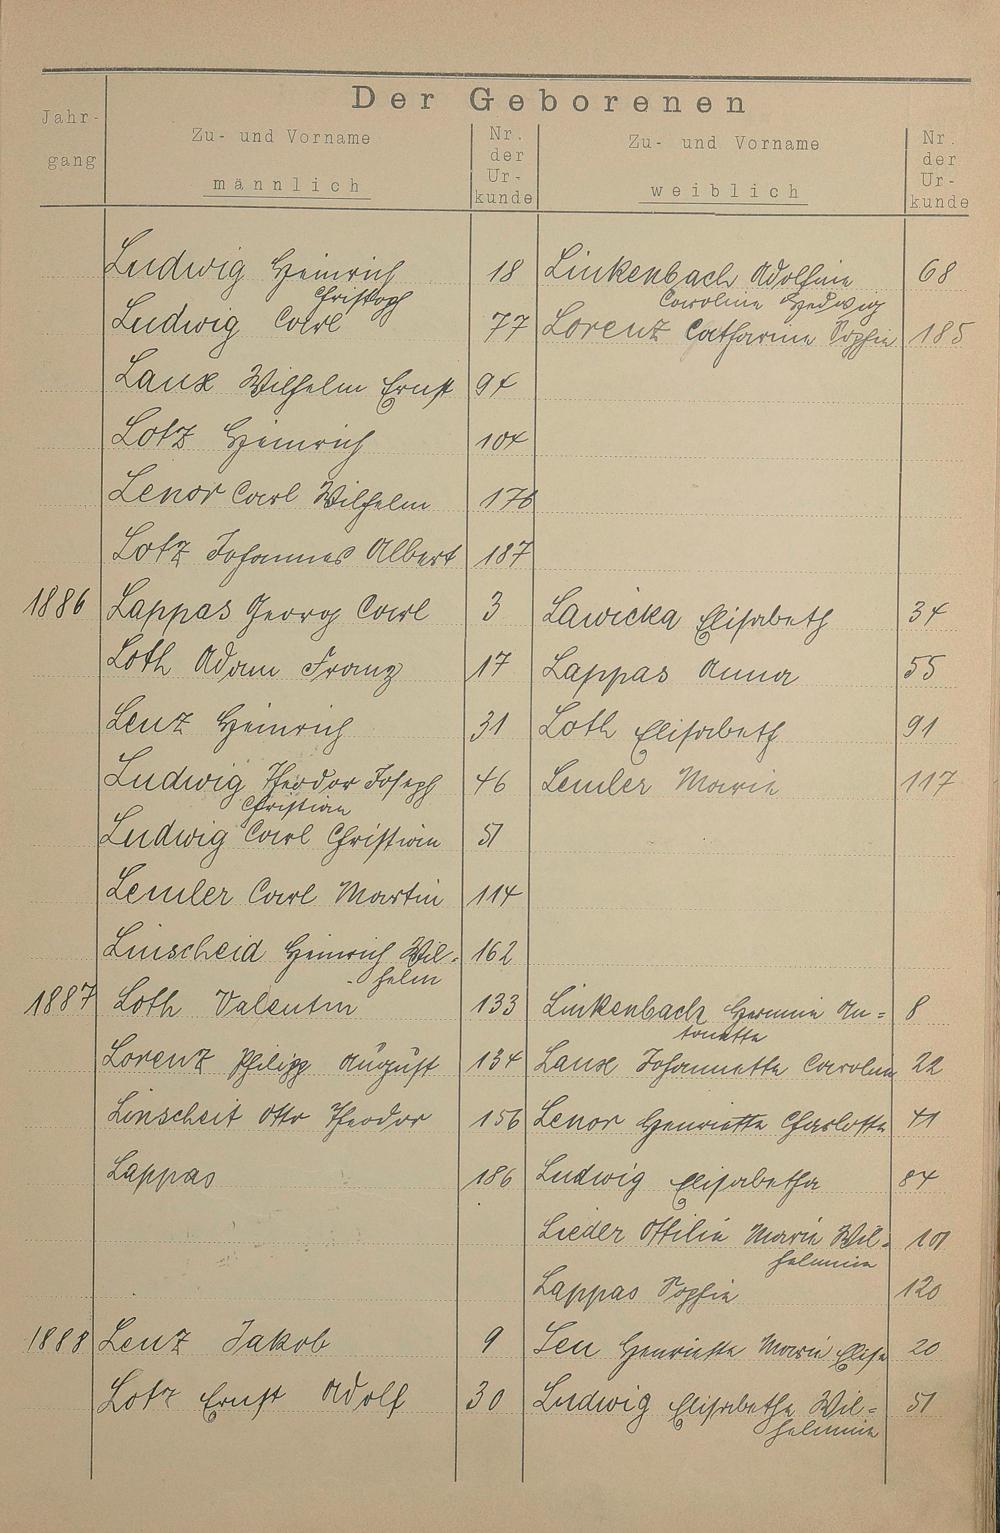 Der Geborenen
Jahr-
gang
Zu- und Vorname
männlich
Nr.
der
Ur-
kunde
Zu- und Vorname
weiblich
Nr.
der
Ur-
kunde
Ludwig Heinrich 18 Linkenbach Adolfine 68
Christoph Caroline Hedwig
Ludwig Carl 77 Lorenz Catharine Sophie 185
Laux Wilhelm Ernst 94
Lotz Heinrich 104
Lenor Carl Wilhelm 176
Lotz Johannes Albert 187
1886 Lappas Georg Carl 3 Lawicka Elisabeth 34
Loth Adam Franz 17 Lappas Anna 55
Lenz Heinrich 31 Loth Elisabeth 91
Ludwig Theodor Joseph 46 Lemler Marie 117
Christian
Ludwig Carl Christian 51
Lemler Carl Martin 114
Linscheid Heinrich Wil- 162
helm
1887 Loth Valentin 133 Linkenbach Hermine An= 8
tonette
Lorenz Philipp August 134 Laux Johannette Caroline 22
Linscheit Otto Theodor 156 Lenor Henriette Charlotte 41
Lappas 186 Ludwig Elisabetha 84
Lieder Ottilie Marie Wil- 101
helmine
Lappas Sophie 120
1888 Lenz Jakob 9 Leu Henriette Marie Elise 20
Lotz Ernst Adolf 30 Ludwig Elisabethe Wil= 51
helmine